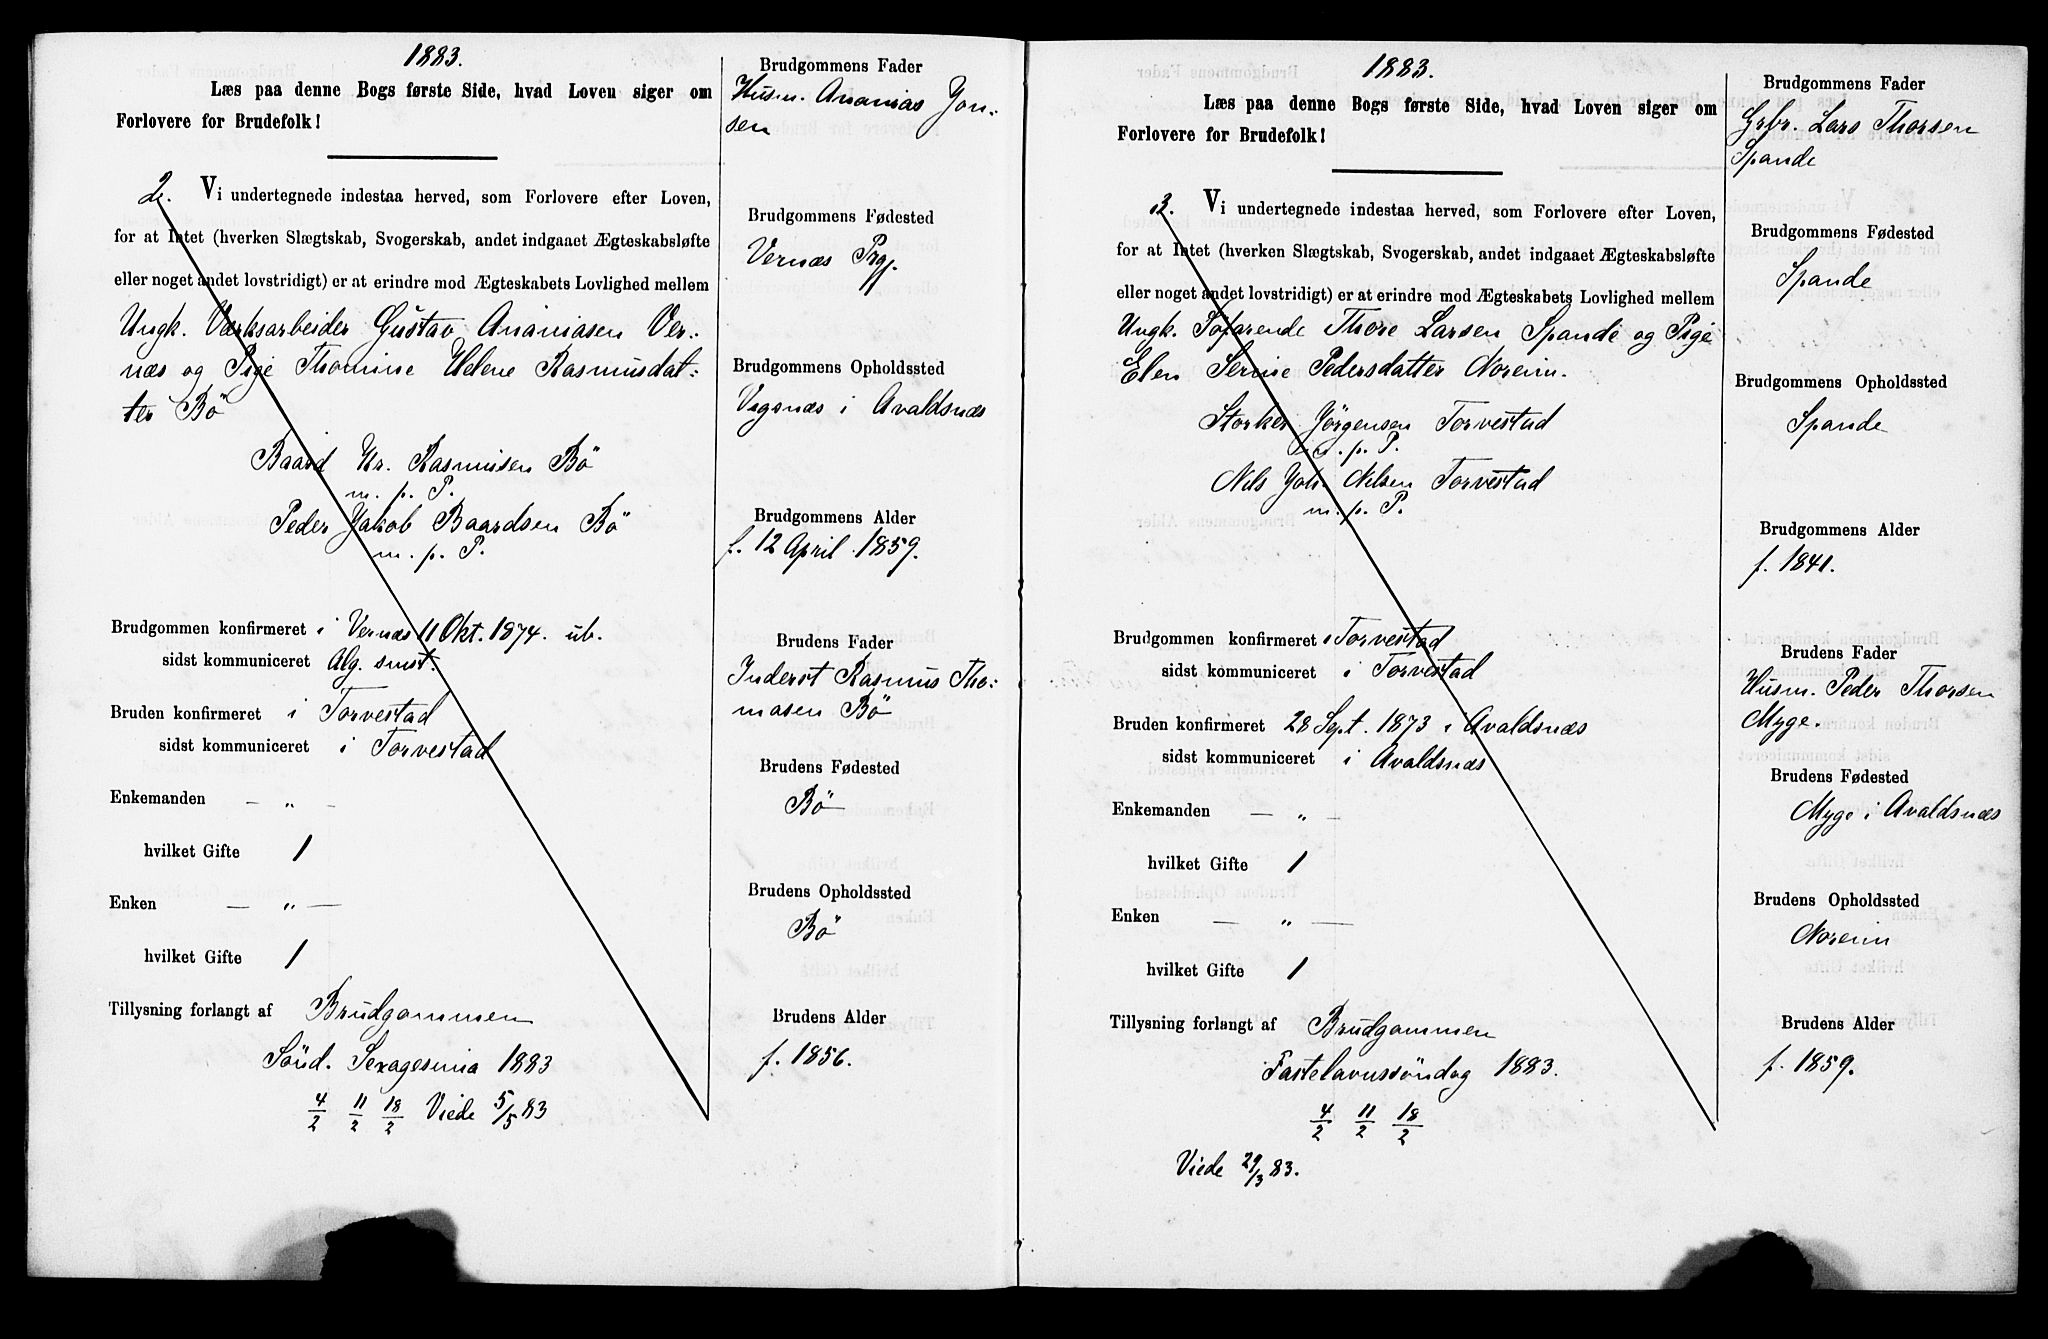 1883.
Læs paa denne Bogs første Side, hvad Loven siger om
Forlovere for Brudefolk!
2. Vi undertegnede indestaa herved, som Forlovere efter Loven,
for at Intet (hverken Slægtskab, Svogerskab, andet indgaaet Ægteskabsløfte
eller noget andet lovstridigt) er at erindre mod Ægteskabets Lovlighed mellem
Ungk. Værksarbeider Gustav Ananiasen Ver-
næs og Pige Thomine Helene Rasmusdat-
ter Bö
Baard Hr. Rasmusen Bö
m. p. P.
Peder Jakob Baardsen Bö
m. p. P.
Brudgommen konfirmeret i Vernæs 11 Okt. 1874. ub.
sidst kommuniceret Alg. smst.
Bruden konfirmeret i Torvestad
sidst kommuniceret i Torvestad
Enkemanden — „ —
hvilket Gifte 1
Enken — „ —
hvilket Gifte 1
Tillysning forlangt af Brudgommen
Sönd. Sexagesima 1883
4/2 11/2 18/2 Viede 5/5 83
Brudgommens Fader
Husm. Ananias Jon-
sen
Brudgommens Fødested
Vernæs Prgj.
Brudgommens Opholdssted
Vigsnæs i Avaldsnæs
Brudgommens Alder
f. 12 April 1859.
Brudens Fader
Inderst Rasmus Tho-
masen Bö
Brudens Fødested
Bö
Brudens Opholdssted
Bö
Brudens Alder
f. 1856.
1883.
Læs paa denne Bogs første Side, hvad Loven siger om
Forlovere for Brudefolk!
3. Vi undertegnede indestaa herved, som Forlovere efter Loven,
for at Intet (hverken Slægtskab, Svogerskab, andet indgaaet Ægteskabsløfte
eller noget andet lovstridigt) er at erindre mod Ægteskabets Lovlighed mellem
Ungk. Söfarende Thore Larsen Spande og Pige
Elen Serine Pedersdatter Noreim.
Storker Jörgensen Torvestad
m. p. P.
Nils Joh. Nilsen Torvestad
m. p. P.
Brudgommen konfirmeret i Torvestad
sidst kommuniceret i Torvestad
Bruden konfirmeret 28 Sept. 1873 i Avaldsnæs
sidst kommuniceret i Avaldsnæs
Enkemanden — „ —
hvilket Gifte 1
Enken — „ —
hvilket Gifte 1
Tillysning forlangt af Brudgommen
Fastelavnssöndag 1883.
4/2 11/2 18/2
Viede 29/3 83.
Brudgommens Fader
Grbr. Lars Thorsen
Spande
Brudgommens Fødested
Spande
Brudgommens Opholdssted
Spande
Brudgommens Alder
f. 1841.
Brudens Fader
Husm. Peder Thorsen
Myge.
Brudens Fødested
Myge i Avaldsnæs
Brudens Opholdssted
Noreim
Brudens Alder
f. 1859.